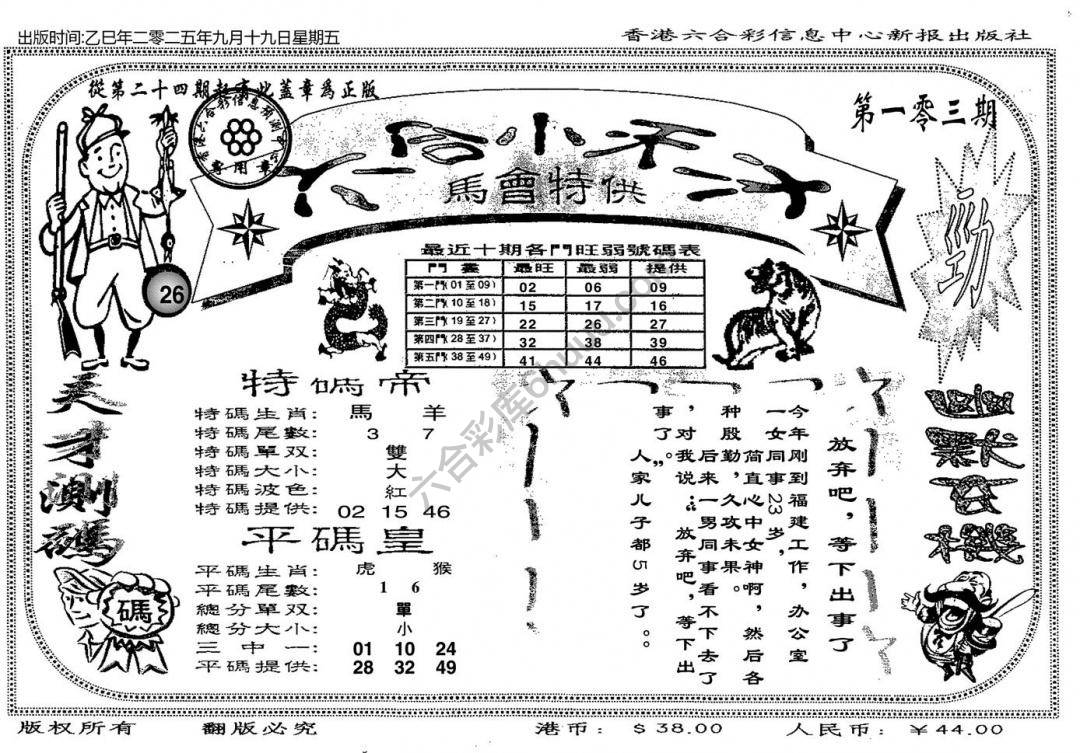 出版时间:乙巳年二零二五年九月十九日星期五
香港六合彩信息中心新报出版社
從第二十四期起有此蓋章爲正版
第一零三期
馬會特供
專用章
勁
26
最近十期各門旺弱號碼表
門 最旺 最弱 提供
第一門(01至09) 02 06 09
第二門(10至18) 15 17 16
第三門(19至27) 22 26 27
第四門(28至37) 32 38 39
第五門(38至49) 41 44 46
天才測碼
碼
特碼帝
特碼生肖: 馬 羊
特碼尾數: 3 7
特碼單双: 雙
特碼大小: 大
特碼波色: 紅
特碼提供: 02 15 46
平碼皇
平碼生肖: 虎 猴
平碼尾數: 1 6
總分單双: 單
總分大小: 小
三中一: 01 10 24
平碼提供: 28 32 49
幽默玄機
放弃吧，等下出事了
今年刚到福建工作，办公室
一女同事23岁，
简直心中女神啊，然后各
种殷勤，久攻未果。
后来一男同事看不下去了
，对我说：“放弃吧，等下出
事了”。
人家儿子都5岁了。。
六合彩库6huuu.com
版权所有
翻版必究
港币: $38.00
人民币: ¥44.00